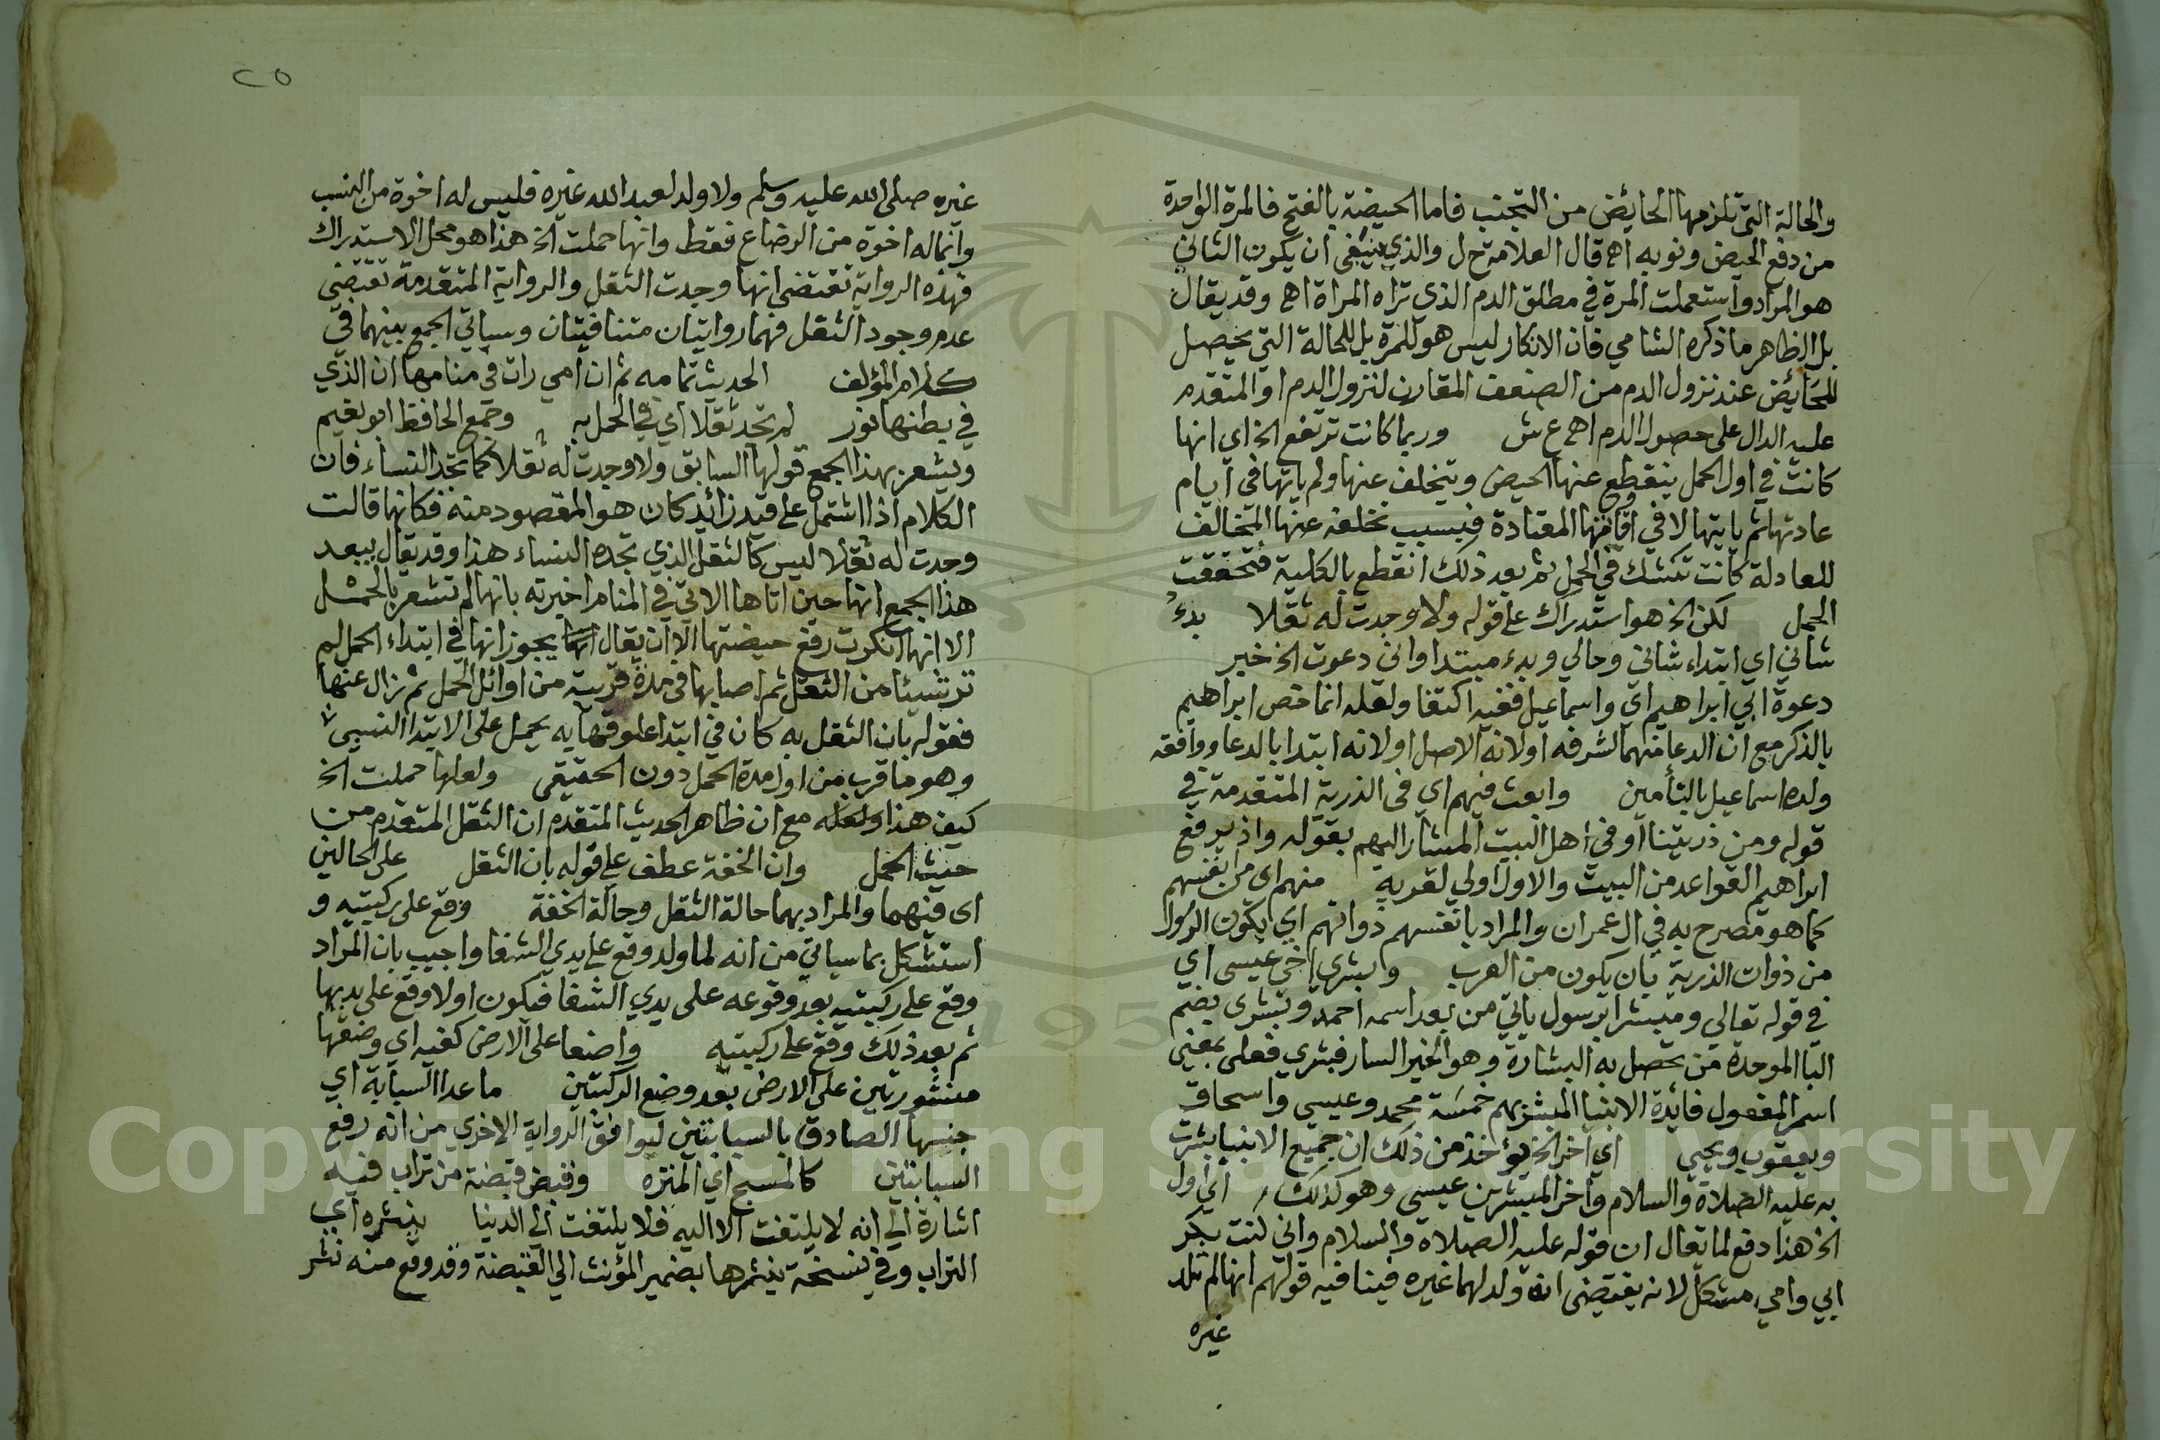 والحالة التي تلزمها الحايض من التجنب فاما الحيضة بالفتح فالمرة الواحدة
من دفع الحيض ونوبه اهـ قال العلامة ح ل والذي ينبغي ان يكون الثاني
هو المراد واستعملت المرة في مطلق الدم الذي تراه المراة اهـ وقد يقال
بل الظاهر ما ذكره الشامي فان الانكار ليس هو للمرة بل للحالة التي يحصل
للحايض عند نزول الدم من الضعف المقارن لنزول الدم او المتقدم
عليه الدال على حصول الدم اهـ ع ش وربما كانت ترتفع الخ اي انها
كانت في اول الحمل ينقطع عنها الحيض ويتخلف عنها ولم ياتها في ايام
عادتها ثم ياتيها لا في اوقاتها المعتادة فبسبب تخلفه عنها المخالف
للعادلة كانت تتشكك في الحمل ثم بعد ذلك انقطع بالكلية فتحققت
الحمل لكن الخ هو استدراك على قوله ولا وجدت له ثقلا بدء
شاني اي ابتداء شاني وحالي وبدء مبتدا واني دعوت الخ خبر
دعوة ابي ابراهيم اي واسماعيل ففيه اكتفا ولعله انما خص ابراهيم
بالذكر مع ان الدعا منهما لشرفه او لانه الاصل او لانه ابتدا بالدعا ووافقه
ولده اسماعيل بالتأمين وابعث فيهم اي في الذرية المتقدمة في
قوله ومن ذريتنا او في اهل البيت المشار اليهم بقوله واذ يرفع
ابراهيم القواعد من البيت والاول اولي لقربه منهم اي من انفسهم
كما هو مصرح به في ال عمران والمراد بانفسهم ذواتهم اي يكون الرسول
من ذوات الذرية بان يكون من العرب وبشرى اخي عيسى اي
في قوله تعالي ومبشرا برسول ياتي من بعد اسمه احمد وبشرى بضم
البا الموحدة من تحصل به البشارة وهو الخبر السار فبشري فعلى بمعنى
اسم المفعول فايدة الانبيا المبشر بهم خمسة محمد وعيسي واسحاق
ويعقوب ويحيي اي اخر الخ يؤخذ من ذلك ان جميع الانبيا بشرت
به عليه الصلاة والسلام واخر المبشرين عيسي وهو كذلك اي اول
الخ هذا دفع لما يقال ان قوله عليه الصلاة والسلام واني كنت بكر
ابي وامي مشكل لانه يقتضي انه ولد لهما غيره فينافيه قولهم انها لم تلد
غيره
٢٥
غيره صلى الله عليه وسلم ولا ولد لعبد الله غيره فليس له اخوة من النسب
وانما له اخوة من الرضاع فقط وانها حملت الخ هذا هو محل الاستدراك
فهذه الرواية تقتضي انها وجدت الثقل والرواية المتقدمة تقتضي
عدم وجود الثقل فهما روايتان متنافيتان وسياتي الجمع بينهما في
كلام المؤلف الحديث تمامه ثم ان امي رات في منامها ان الذي
في بطنها نور لم تجد ثقلا اي في الحمل به وجمع الحافظ ابو نعيم
ويشعر بهذا الجمع قولها السابق ولا وجدت له ثقلا كما تجد النساء فان
الكلام اذا اشتمل على قيد زائد كان هو المقصود منه فكانها قالت
وجدت له ثقلا ليس كالثقل الذي تجده النساء هذا وقد يقال يبعد
هذا الجمع انها حين اتاها الاتي في المنام اخبرته بانها لم تشعر بالحمل
الا انها انكرت رفع حيضتها الا ان يقال يجوز انها في ابتداء الحمل لم
تر شيئا من الثقل ثم اصابها في مدة قريبة من اوائل الحمل ثم زال عنها
فقوله بان الثقل به كان في ابتدا علوقها به يحمل على الابتدا النسبي
وهو ما قرب من اول مدة الحمل دون الحقيقي ولعلها حملت الخ
كيف هذا ولعله مع ان ظاهر الحديث المتقدم ان الثقل المتقدم من
حيث الحمل وان الخفة عطف على قوله بان الثقل على الحالين
اي فيهما والمراد بهما حالة الثقل وحالة الخفة وقع على ركبتيه و
استشكل بما سياتي من انه لما ولد وقع على يدي الشفا واجيب بان المراد
وقع على ركبتيه بعد وقوعه على يدي الشفا فيكون اولا وقع على يديها
ثم بعد ذلك وقع على ركبتيه واضعا على الارض كفيه اي وضعها
منشورتين على الارض بعد وضع الركبتين ما عدا السبابة اي
جنسها الصادق بالسبابتين ليوافق الرواية الاخري من انه رفع
السبابتين كالمسبح اي المنزه وقبض قبضة من تراب فيه
اشارة الي انه لا يلتفت الا اليه فلا يلتفت الي الدنيا ينشره اي
التراب وفي نسخة ينشرها بضمير المؤنث الي القبضة وقد وقع منه نشر
Copyright © King Saud University
195